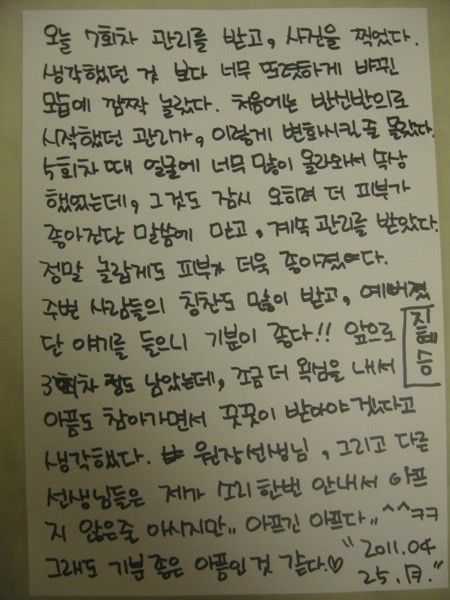 오늘 7회차 관리를 받고, 사진을 찍었다.
생각했던 것 보다 너무 뚜렷하게 바뀐
모습에 깜짝 놀랐다. 처음에는 반신반의로
시작했던 관리가, 이렇게 변화시킬 줄 몰랐다.
5회차 때 얼굴에 너무 많이 올라와서 속상
했었는데, 그것도 잠시 오히려 더 피부가
좋아진단 말씀에 믿고, 계속 관리를 받았다.
정말 놀랍게도 피부가 더욱 좋아졌었다.
주변 사람들의 칭찬도 많이 받고, 예뻐졌
단 얘기를 들으니 기분이 좋다!! 앞으로
3회차 정도 남았는데, 조금 더 욕심을 내서
아픔도 참아가면서 꿋꿋이 받아야 겠다고
생각했다. 원장선생님, 그리고 다른
선생님들은 제가 소리 한번 안내서 아프
지 않은줄 아시지만.. 아프긴 아프다.. ^^ㅋㅋ
그래도 기분 좋은 아픔인 것 같다.♡ "2011.04
25. 月."